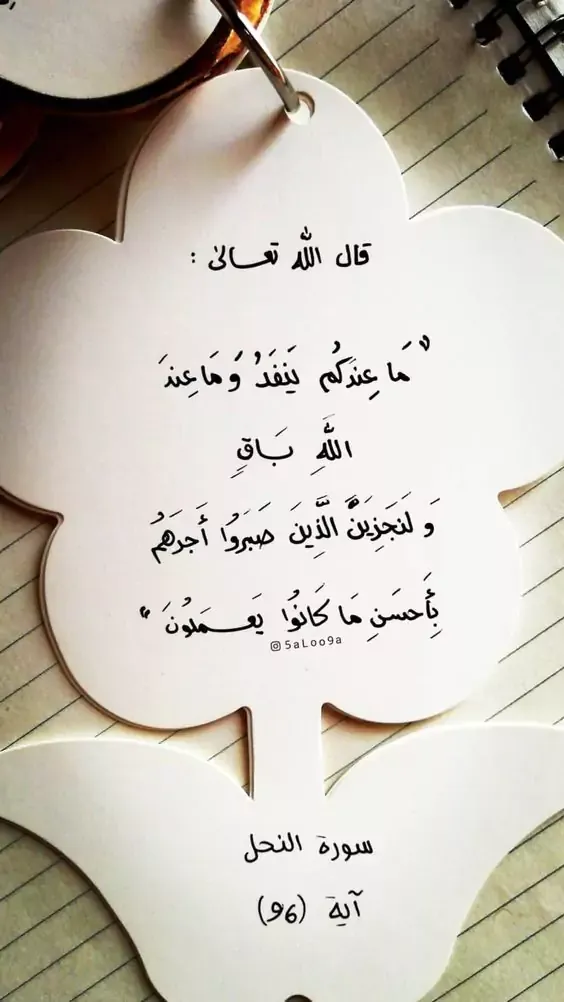 قال الله تعالى :
"مَا عِندَكُم يَنفَدُ وَمَا عِندَ
اللَّهِ بَاقٍ
وَ لَنَجزِيَنَّ الَّذِينَ صَبَرُوا أَجرَهُم
بِأَحسَنِ مَا كَانُوا يَعمَلُونَ"
5aLoo9a
سورة النحل
آية (96)